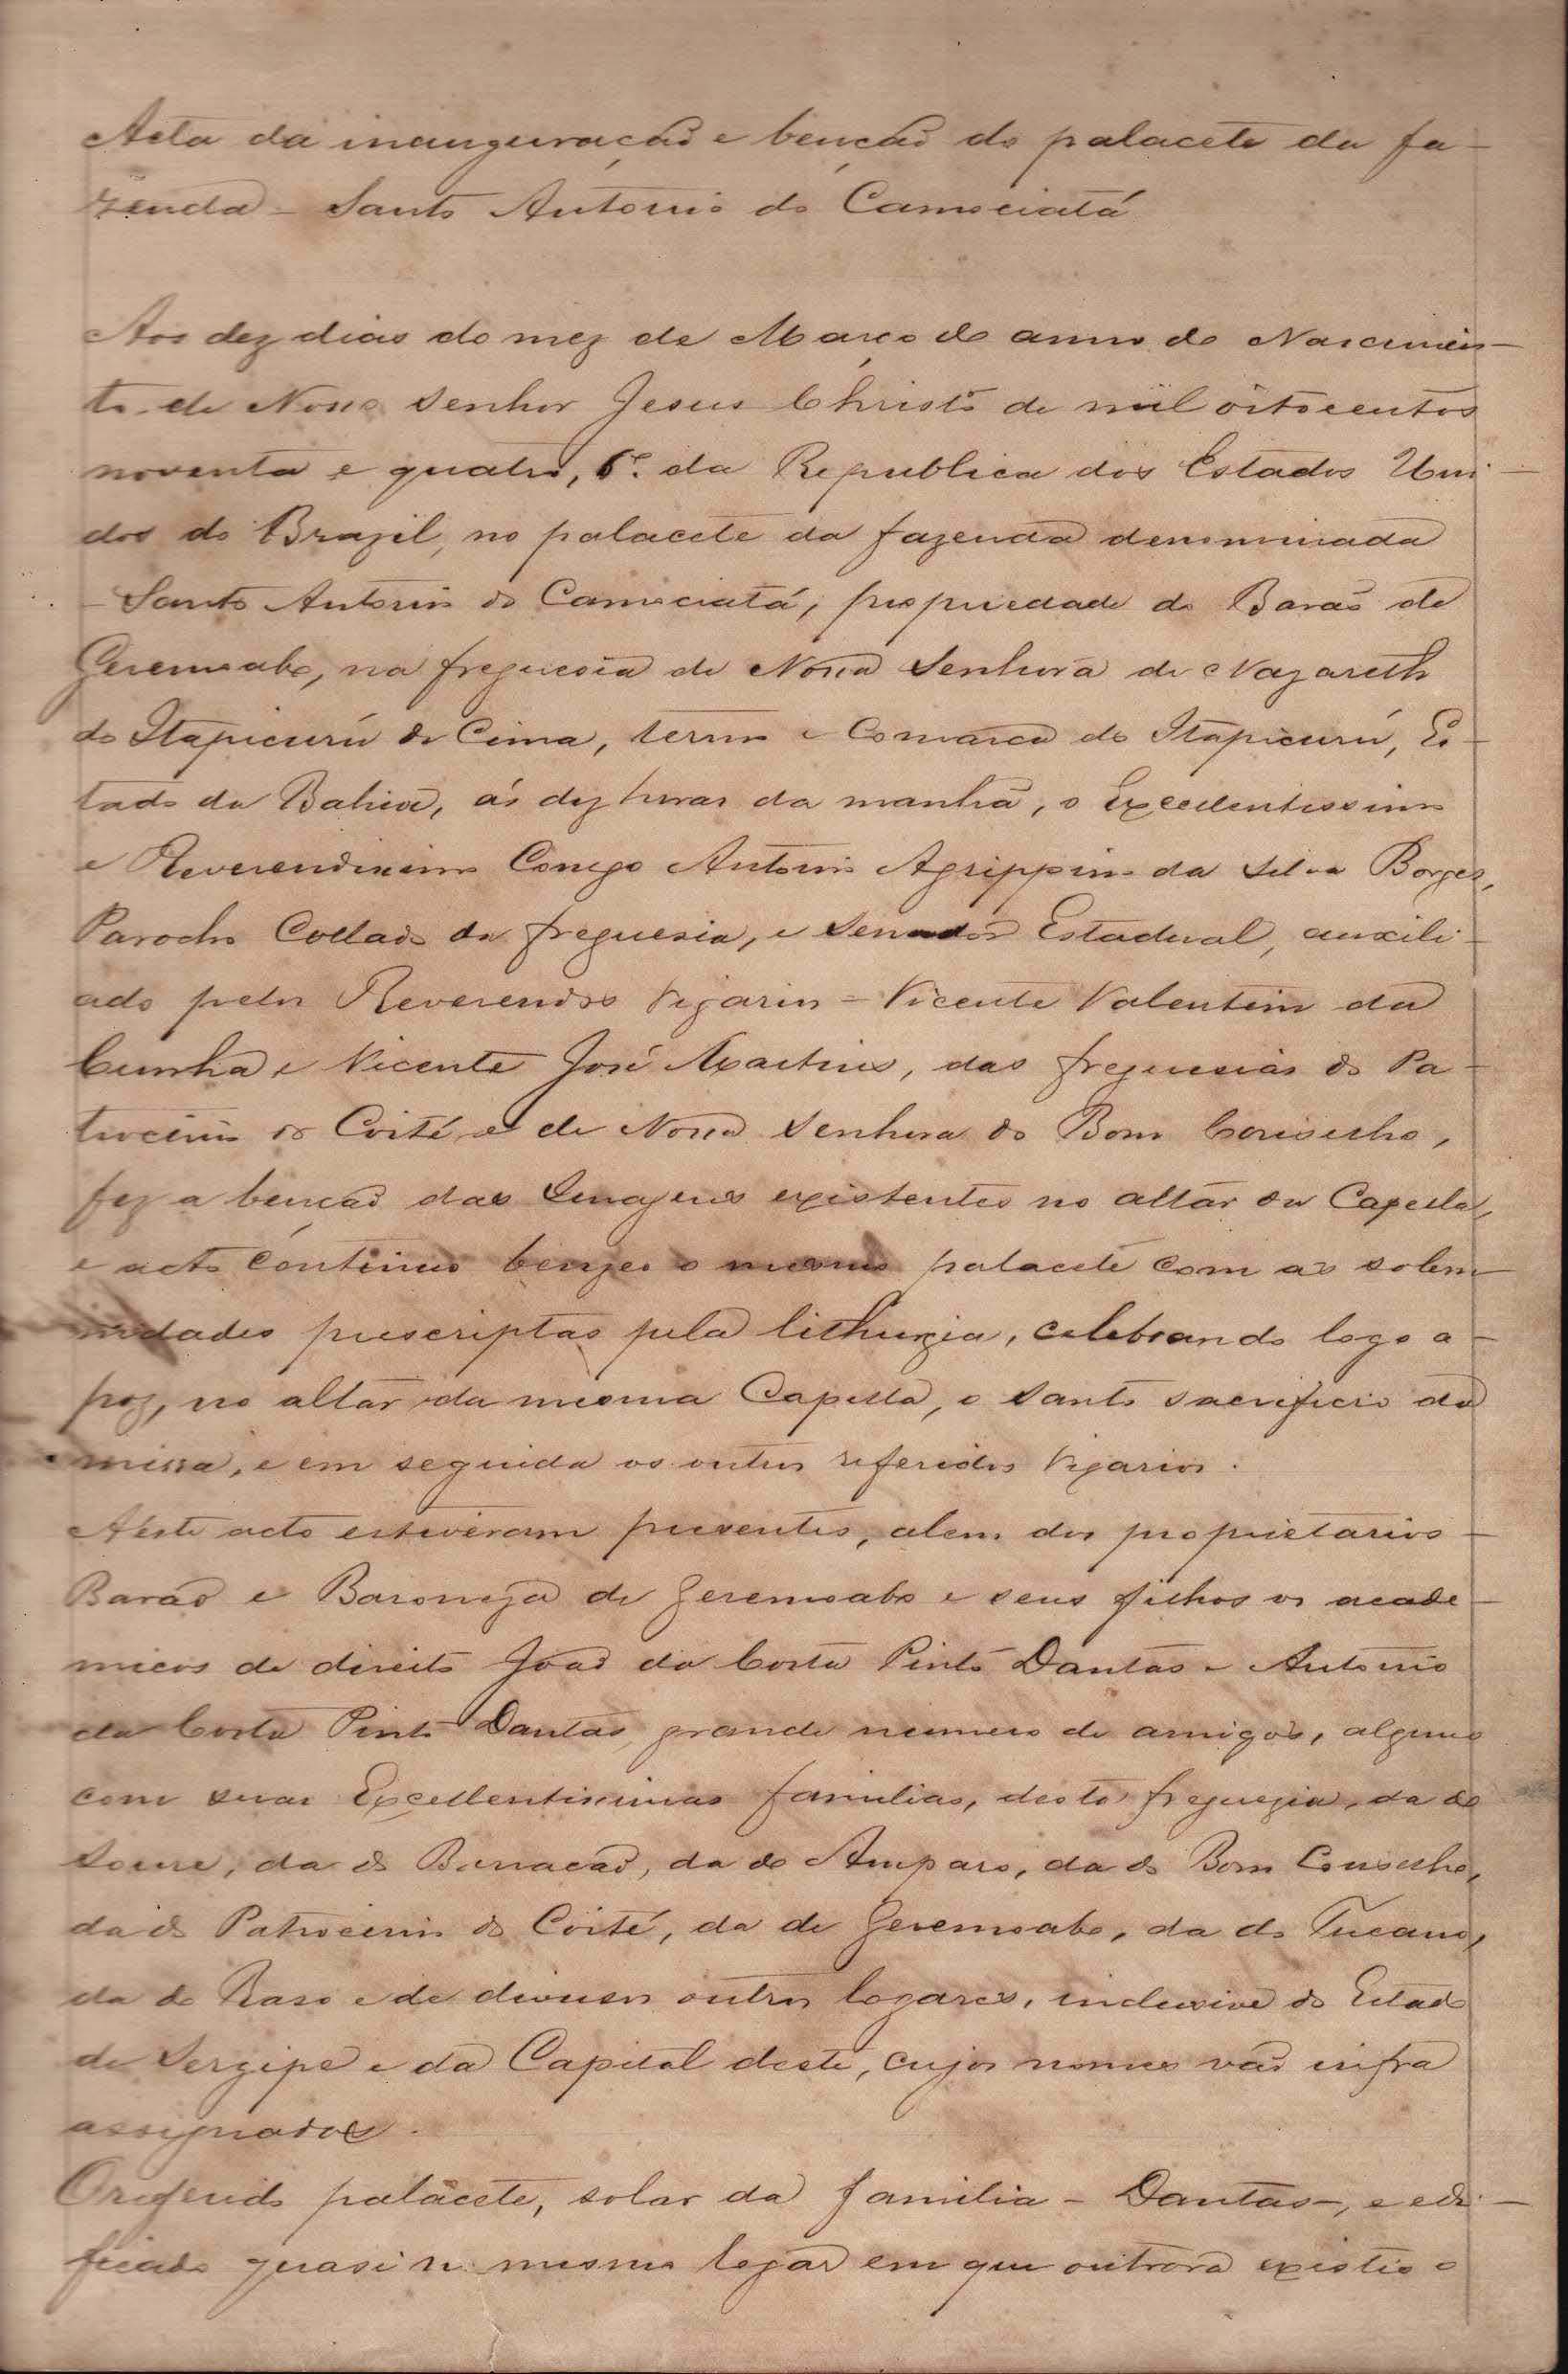 Acta da inauguração e benção do palacete da fa-
zenda - Santo Antonio do Camociatá
Aos dez dias do mez de Março do anno do Nascimen-
to de Nosso Senhor Jesus Christo de mil oitocentos
noventa e quatro, 6º. da Republica dos Estados Uni-
dos do Brazil, no palacete da fazenda denominada
- Santo Antonio do Camociatá, propriedade do Barão de
Geremoabo, na freguesia de Nossa Senhora de Nazareth
do Itapicurú de Cima, termo e Comarca do Itapicurú, Es-
tado da Bahia, ás dez horas da manhã, o Excellentissimo
e Reverendissimo Conego Antonio Agrippino da Silva Borges,
Parocho Collado da freguesia, e Senador Estadual, auxili-
ado pelos Reverendos Vigarios - Vicente Valentim da
Cunha e Vicente José Martins, das freguesias do Pa-
trocinio do Coité e de Nossa Senhora do Bom Conselho,
fez a benção das Imagens existentes no altar da Capella,
e acto continuo benzeo o mesmo palacete com as solem-
nidades prescriptas pela lithurgia, celebrando logo a-
poz, no altar da mesma Capella, o santo sacrificio da
missa, e em seguida os outros referidos Vigarios.
Néste acto estiveram presentes, alem dos proprietarios -
Barão e Baroneza de Geremoabo e seus filhos os acade-
micos de direito João da Costa Pinto Dantas e Antonio
da Costa Pinto Dantas, grande numero de amigos, alguns
com suas Excellentissimas familias, desta freguezia, da do
Soure, da do Barracão, da do Amparo, da do Bom Conselho,
da do Patrocinio do Coité, da de Geremoabo, da do Tucano,
da do Raso e de diversos outros logares, inclusive do Estado
de Sergipe e da Capital deste, cujos nomes vão infra
assignados.
O referido palacete, solar da familia - Dantas -, e edi-
ficado quasi no mesmo logar em que outrora existio o